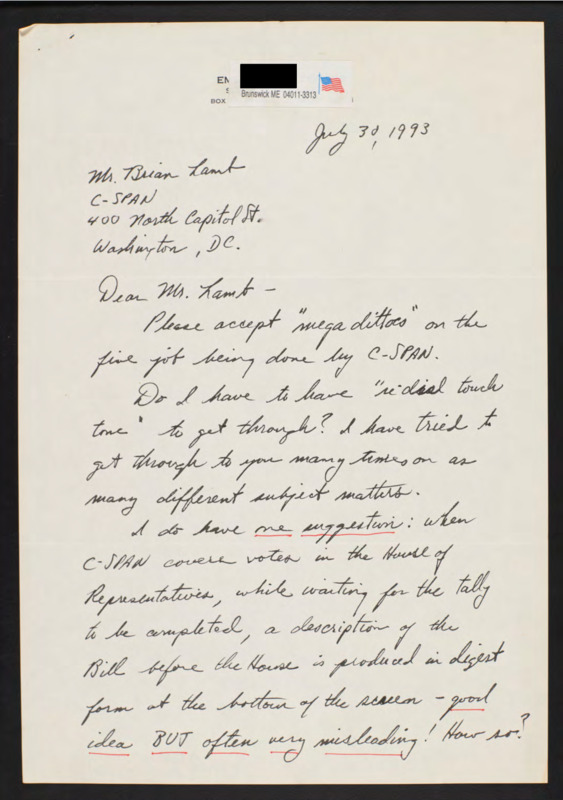 EM
S
BOX
Brunswick ME 04011-3313
July 30, 1993
Mr. Brian Lamb
C-SPAN
400 North Capitol St.
Washington, DC.
Dear Mr. Lamb -
Please accept "mega dittoes" on the
fine job being done by C-SPAN.
Do I have to have "redial touch
tone" to get through? I have tried to
get through to you many times on as
many different subject matters.
I do have one suggestion: when
C-SPAN covers votes in the House of
Representatives, while waiting for the tally
to be completed, a description of the
Bill before the House is produced in digest
form at the bottom of the screen - good
idea BUT often very misleading! How so?